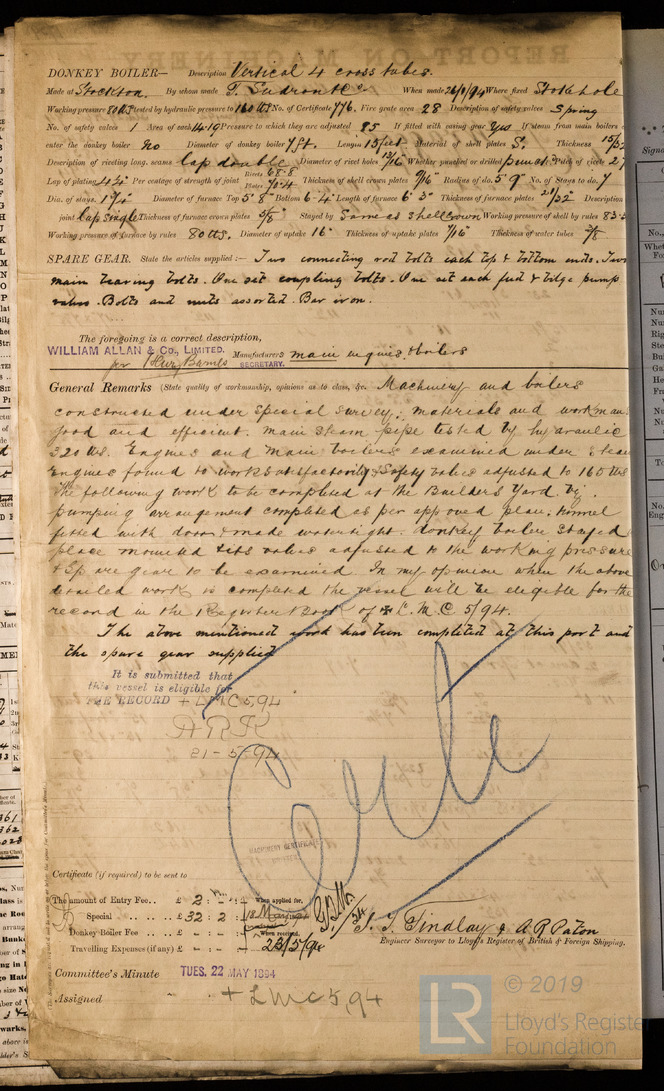 DONKEY BOILER— Description Vertical 4 cross tubes.
Made at Stockton. By whom made T. Sudron & Co When made 26/1/94 Where fixed Stokehole
Working pressure 80 lbs tested by hydraulic pressure to 160 lbs No. of Certificate 776. Fire grate area 28 Description of safety valves Spring
No. of safety valves 1 Area of each 14.19 Pressure to which they are adjusted 85 If fitted with easing gear Yes If steam from main boilers
enter the donkey boiler No Diameter of donkey boiler 7 ft. Length 15 feet Material of shell plates S. Thickness 15/32
Description of riveting long. seams Lap double Diameter of rivet holes 13/16 Whether punched or drilled punched Pitch of rivets 2
Lap of plating 4 1/4 Per centage of strength of joint Rivets 68.8 Plates 70.4 Thickness of shell crown plates 9/16 Radius of do. 5' 9" No. of Stays to do. 7
Dia. of stays. 1 3/4 Diameter of furnace Top 5' 8" Bottom 6' 4" Length of furnace 6' 3" Thickness of furnace plates 21/32 Description
joint Lap single Thickness of furnace crown plates 5/8 Stayed by Same as shell crown Working pressure of shell by rules 83.5
Working pressure of furnace by rules 80 lbs. Diameter of uptake 16" Thickness of uptake plates 7/16 Thickness of water tubes 3/8
SPARE GEAR. State the articles supplied:— Two connecting rod bolts each top & bottom ends. Two
main bearing bolts. One set coupling bolts. One set each feed & bilge pump
valves. Bolts and nuts assorted. Bar iron.
The foregoing is a correct description,
WILLIAM ALLAN & Co., LIMITED. Manufacturers main engines & boilers
per SECRETARY.
General Remarks (State quality of workmanship, opinions as to class, &c. Machinery and boilers
constructed under special survey; materials and workman
good and efficient. Main steam pipe tested by hydraulic
320 lbs. Engines and main boilers examined under steam
Engines found to work satisfactorily & safety valves adjusted to 160 lbs
The following work to be completed at the Builders Yard. viz.
pumping arrangement completed as per approved plan, tunnel
fitted with door & made watertight. donkey boiler stayed
place mounted & its valves adjusted to the working pressure
& Spare gear to be examined In my opinion when the above
detailed work is completed the vessel will be eligible for the
record in the Register Book of + L.M.C 5/94.
The above mentioned work has been completed at this port and
the spare gear supplied
It is submitted that
this vessel is eligible for
THE RECORD + LMC 5,94
21-5-94
MACHINERY CERTIFICATE
Certificate (if required) to be sent to
The amount of Entry Fee.. £ 2 : - : When applied for,
Special .. .. .. £ 32 : 2 :
Donkey Boiler Fee .. .. £ - : - : When received,
Travelling Expenses (if any) £ - : - : 23/5/94
J. T. Findlay & A R Paton
Engineer Surveyor to Lloyd's Register of British & Foreign Shipping.
Committee's Minute TUES. 22 MAY 1894
Assigned + LMC 5,94
LR © 2019
Lloyd's Register
Foundation